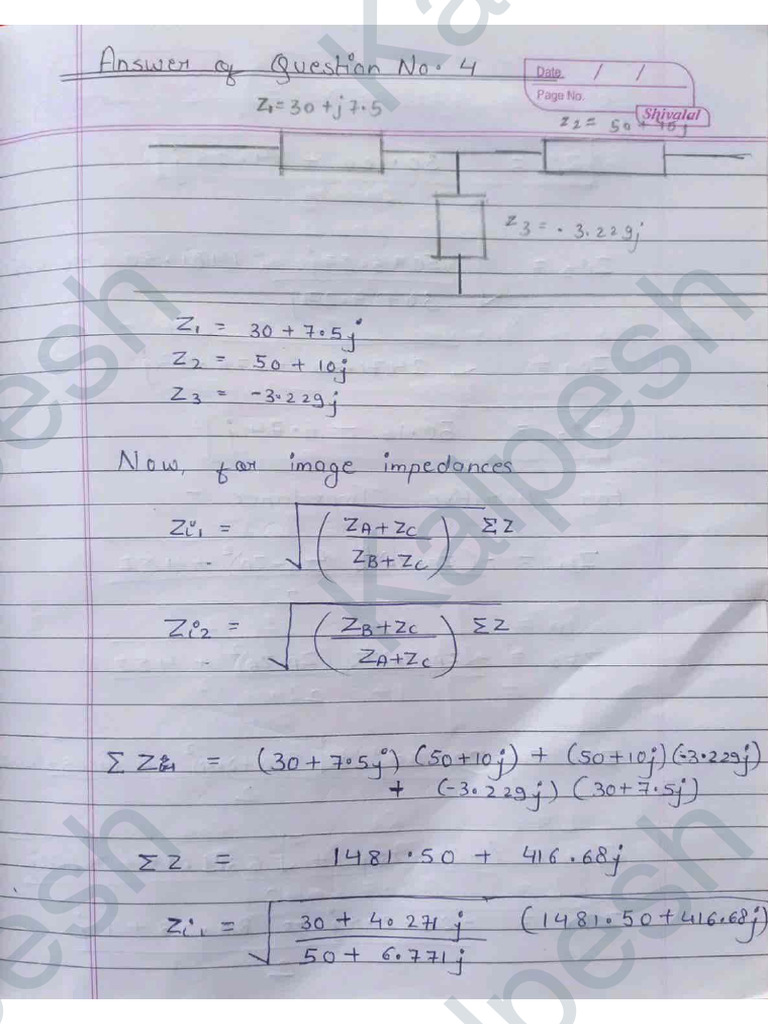 Answer of Question No. 4
Date / /
Page No.
Shivalal
Z1 = 30 + j 7.5
Z2 = 50 + j
Z3 = - 3.229j
Z1 = 30 + 7.5j
Z2 = 50 + 10j
Z3 = -3.229j
Now, for image impedances
Zi1 = √((ZA+ZC / ZB+ZC) ΣZ)
Zi2 = √((ZB+ZC / ZA+ZC) ΣZ)
Σ Z = (30+7.5j) (50+10j) + (50+10j) (-3.229j)
+ (-3.229j) (30+7.5j)
ΣZ = 1481.50 + 416.68j
Zi1 = √(30 + 4.271j / 50 + 6.771j (1481.50+416.68j)
Kalpesh
Kalpesh
Kalpesh